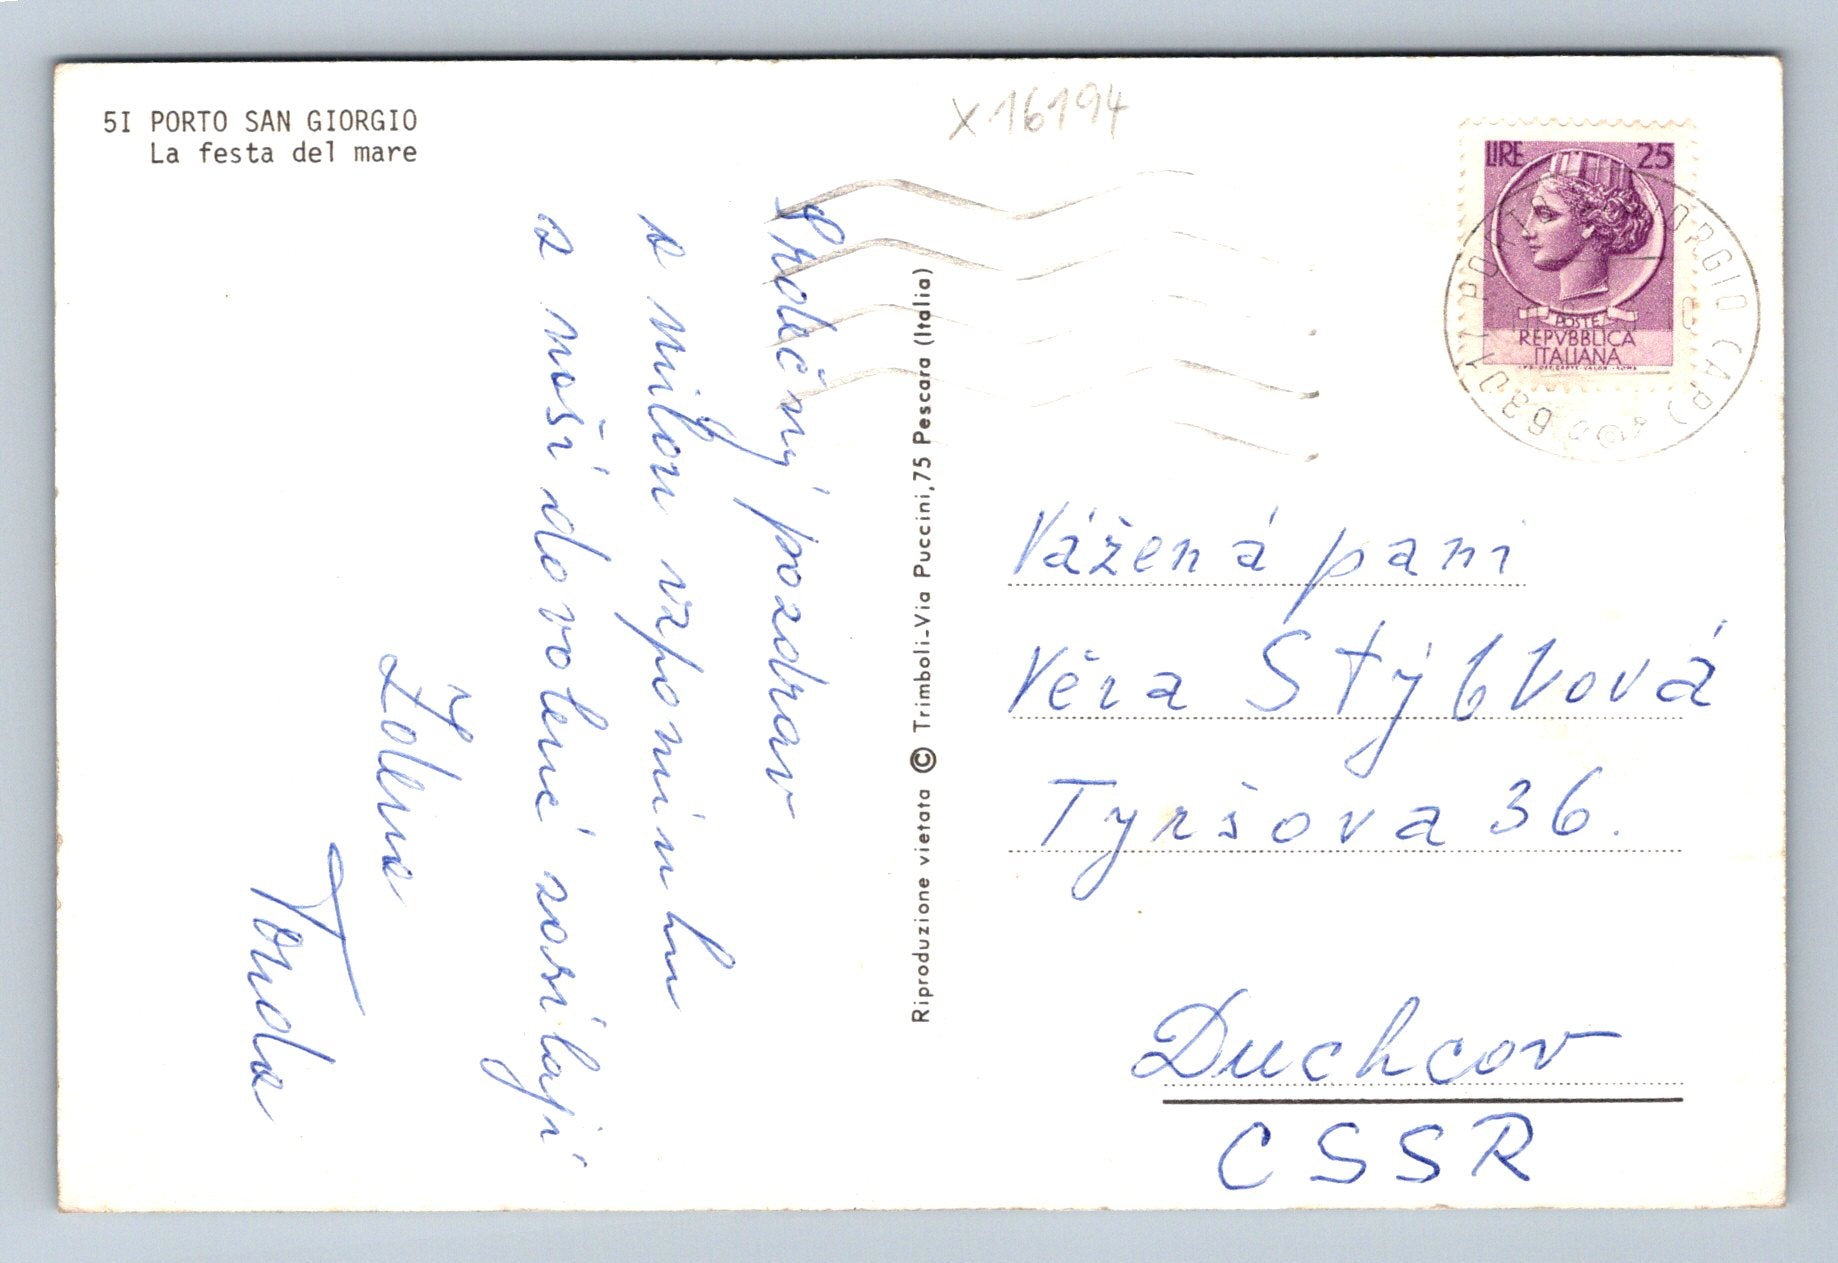 51 PORTO SAN GIORGIO
La festa del mare
X 16194
LIRE 25
POSTE
REPVBBLICA
ITALIANA
Srdečný pozdrav
a milou vzpomínku
z naší dovolené zasílají
Zdena
Tonda
Riproduzione vietata © Trimboli-Via Puccini,75 Pescara (Italia)
Vážená paní
Věra Stýblová
Tyršova 36.
Duchcov
CSSR